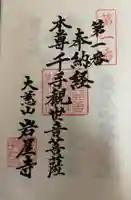 第一番
奉納経
本尊千手観世音菩薩
大慈山
岩屋寺